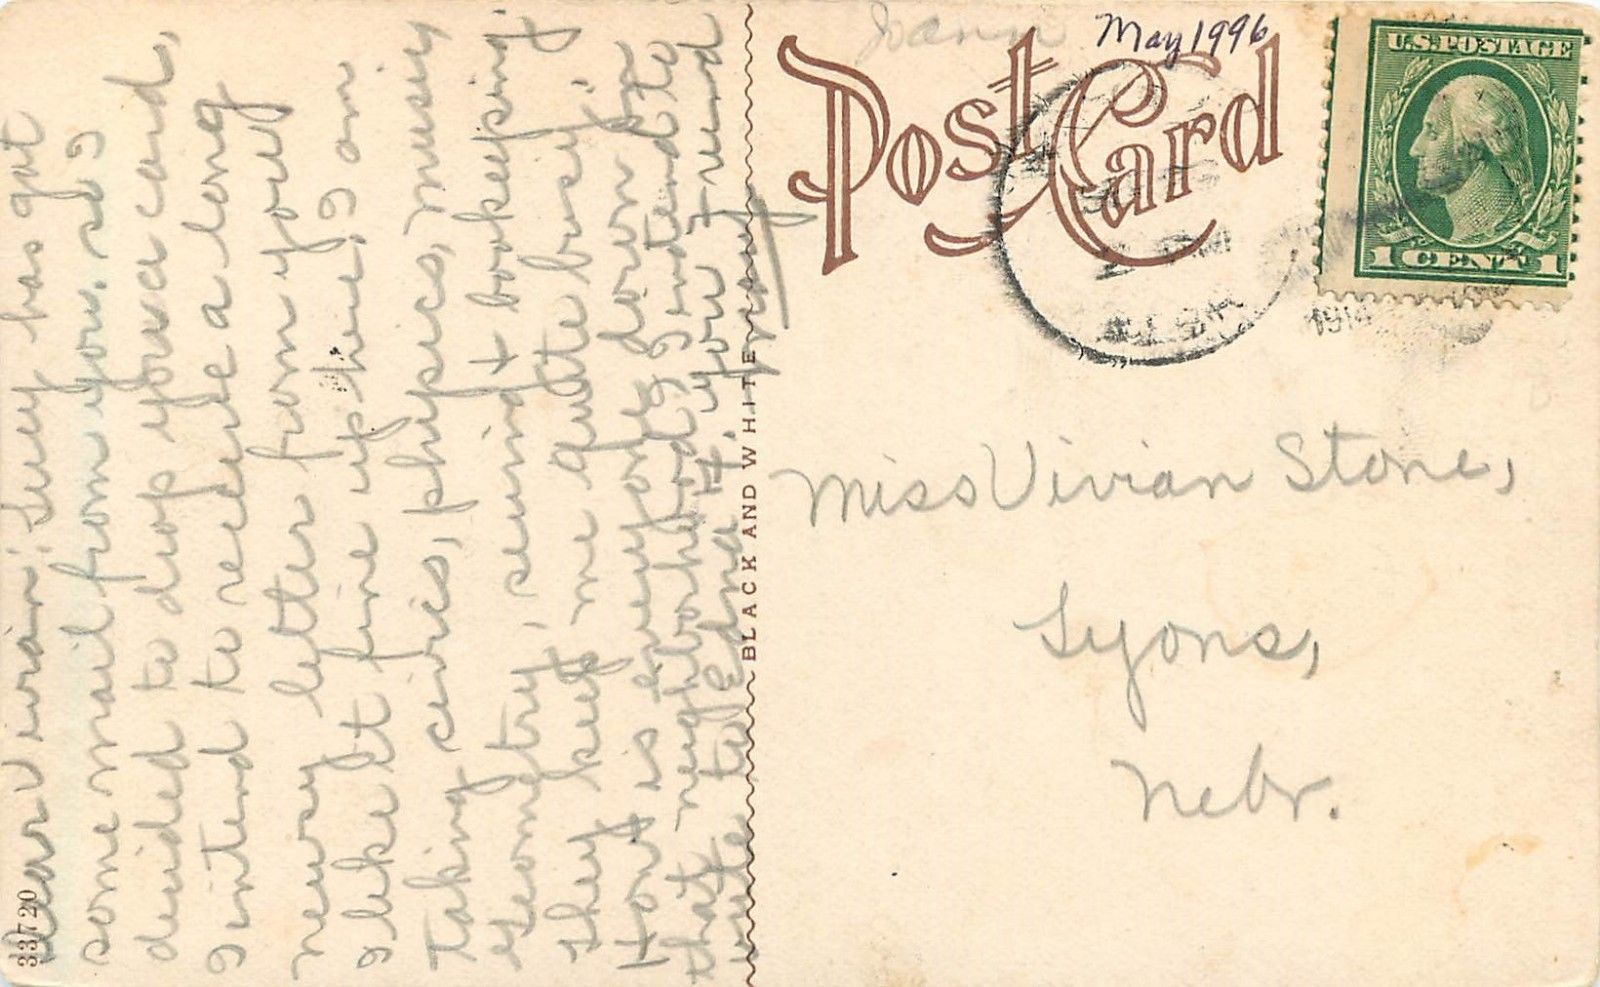 Joann
May 1996
Post Card
U.S. POSTAGE
1 CENT 1
1914
Dear Vivian: Suey has got
some mail from you. so I
decided to drop you a card,
I intend to receive a long
newsy letter from you
I like it fine up here, I am
taking civics, physics, music,
Geometry, sewing + bookeeping
They keep me quite busy,
How is everyone down in
that neighborhood, I intend to
write to Edna H. your friend
Mary
BLACK AND WHITE
33720
Miss Vivian Stone,
Lyons,
Nebr.